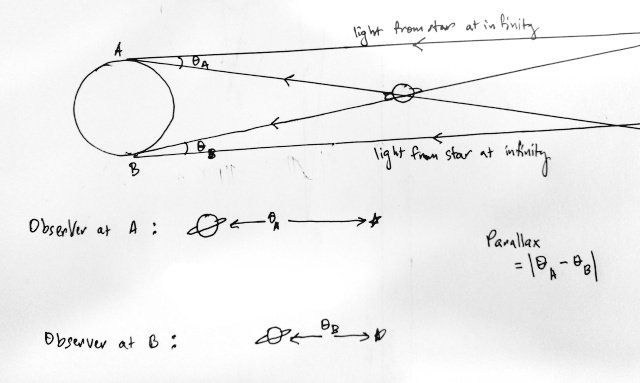 light from star at infinity
A
θA
θB
B
light from star at infinity
Observer at A : θA
Parallax
= |θA - θB|
Observer at B : θB